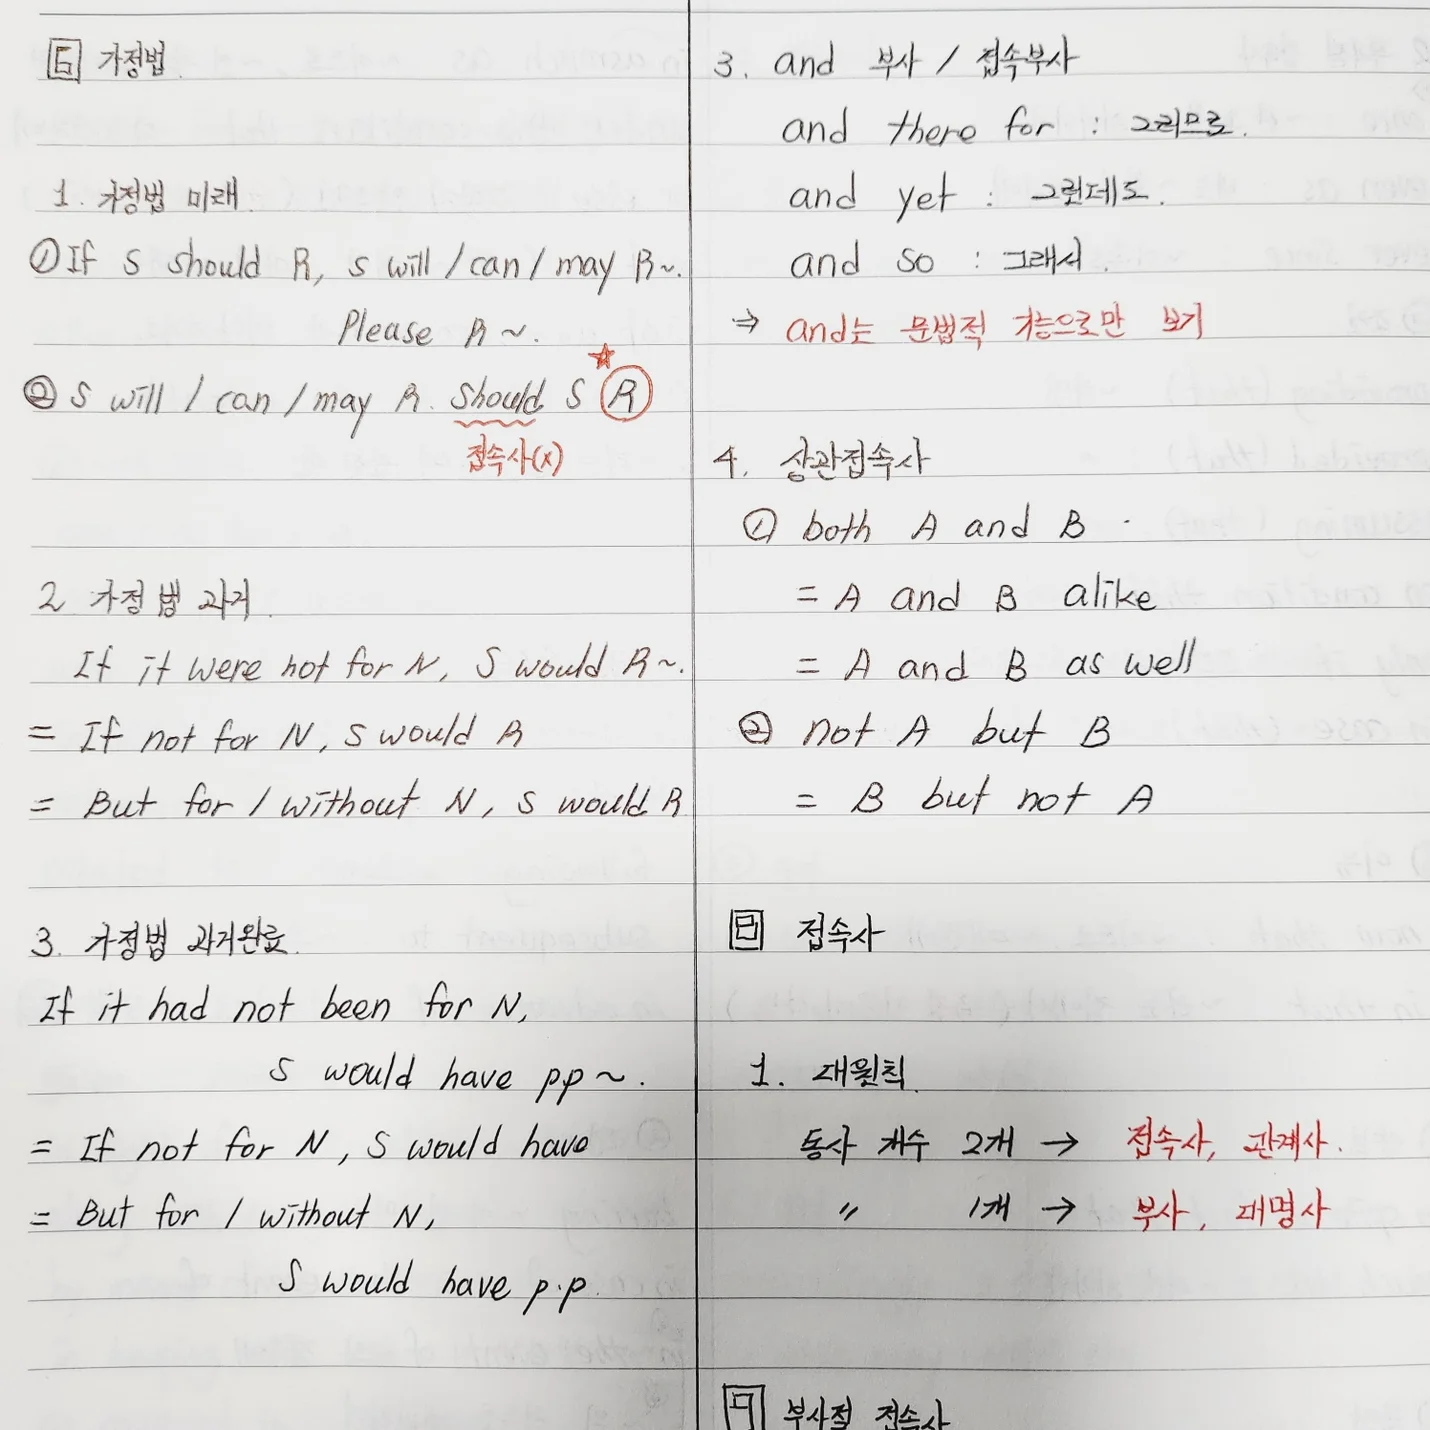 6 가정법
1. 가정법 미래.
① If S should R, S will / can / may R~.
Please R ~.
② S will / can / may R. Should S R
접속사(x)
2 가정법 과거.
If it were not for N, S would R~.
= If not for N, S would R
= But for / without N, S would R
3. 가정법 과거완료.
If it had not been for N,
S would have pp ~.
= If not for N, S would have
= But for / without N,
S would have p.p.
3. and 부사 / 접속부사
and there for : 그러므로.
and yet : 그런데도.
and so : 그래서.
⇒ and는 문법적 기능으로만 보기
4. 상관접속사
① both A and B
= A and B alike
= A and B as well
② not A but B
= B but not A
접속사
1. 대원칙
동사 개수 2개 → 접속사, 관계사.
〃 1개 → 부사, 대명사
부사절 접속사